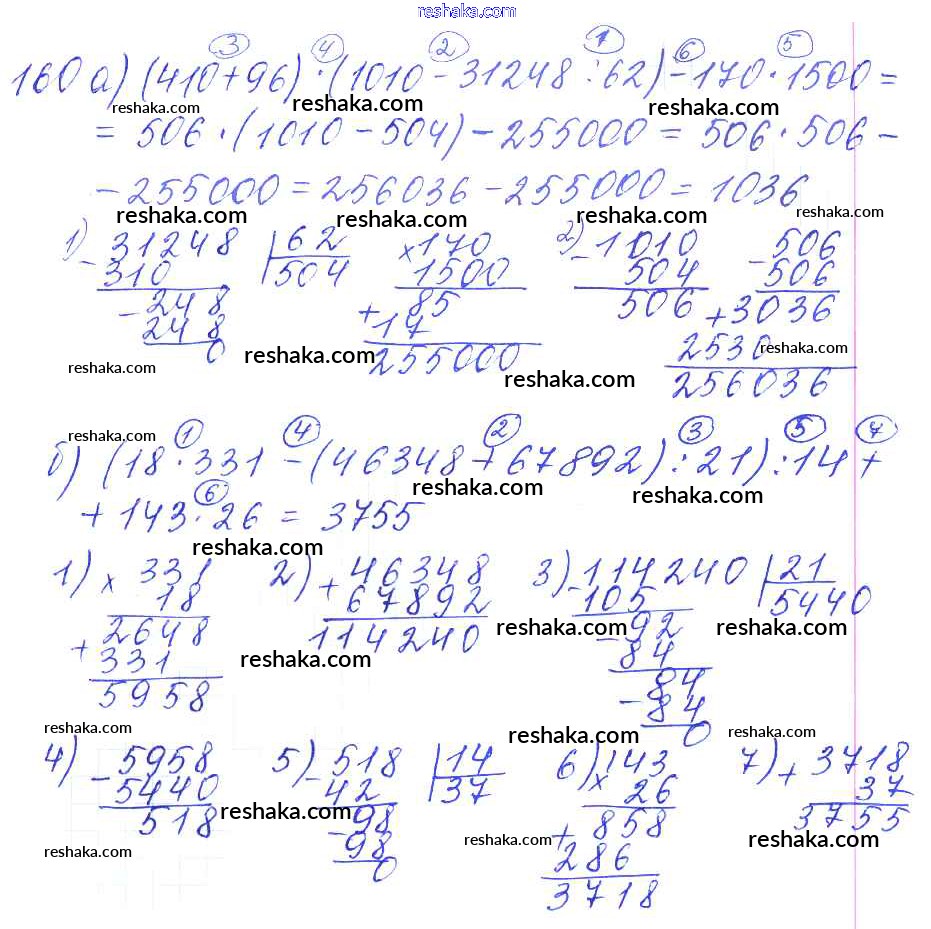 reshaka.com
3 4 2 1 6 5
160 а) (410+96)·(1010-31248:62)-170·1500=
reshaka.com reshaka.com reshaka.com reshaka.com
= 506·(1010-504)-255000=506·506-
-255000=256036-255000=1036
reshaka.com reshaka.com reshaka.com reshaka.com
1) -31248 |62 ×170 2) -1010 -506
310 504 1500 504 506
-248 +85 506 +3036
248 17 2530 reshaka.com
0 reshaka.com 255000 reshaka.com 256036
reshaka.com
reshaka.com 1 4 2 3 5 7
б) (18·331-(46348+67892):21):14+
reshaka.com reshaka.com
6
+143·26=3755
reshaka.com
1) ×331 2) +46348 3) -114240 |21
18 67892 105 5440
+2648 114240 -92 reshaka.com reshaka.com
331 reshaka.com 84
5958 -84
84
reshaka.com reshaka.com 0 reshaka.com
4) -5958 5) -518 |14 6) ×143 7) +3718
5440 42 37 26 37
518 reshaka.com -98 +858 3755
reshaka.com 98 reshaka.com 286 reshaka.com
0 3718